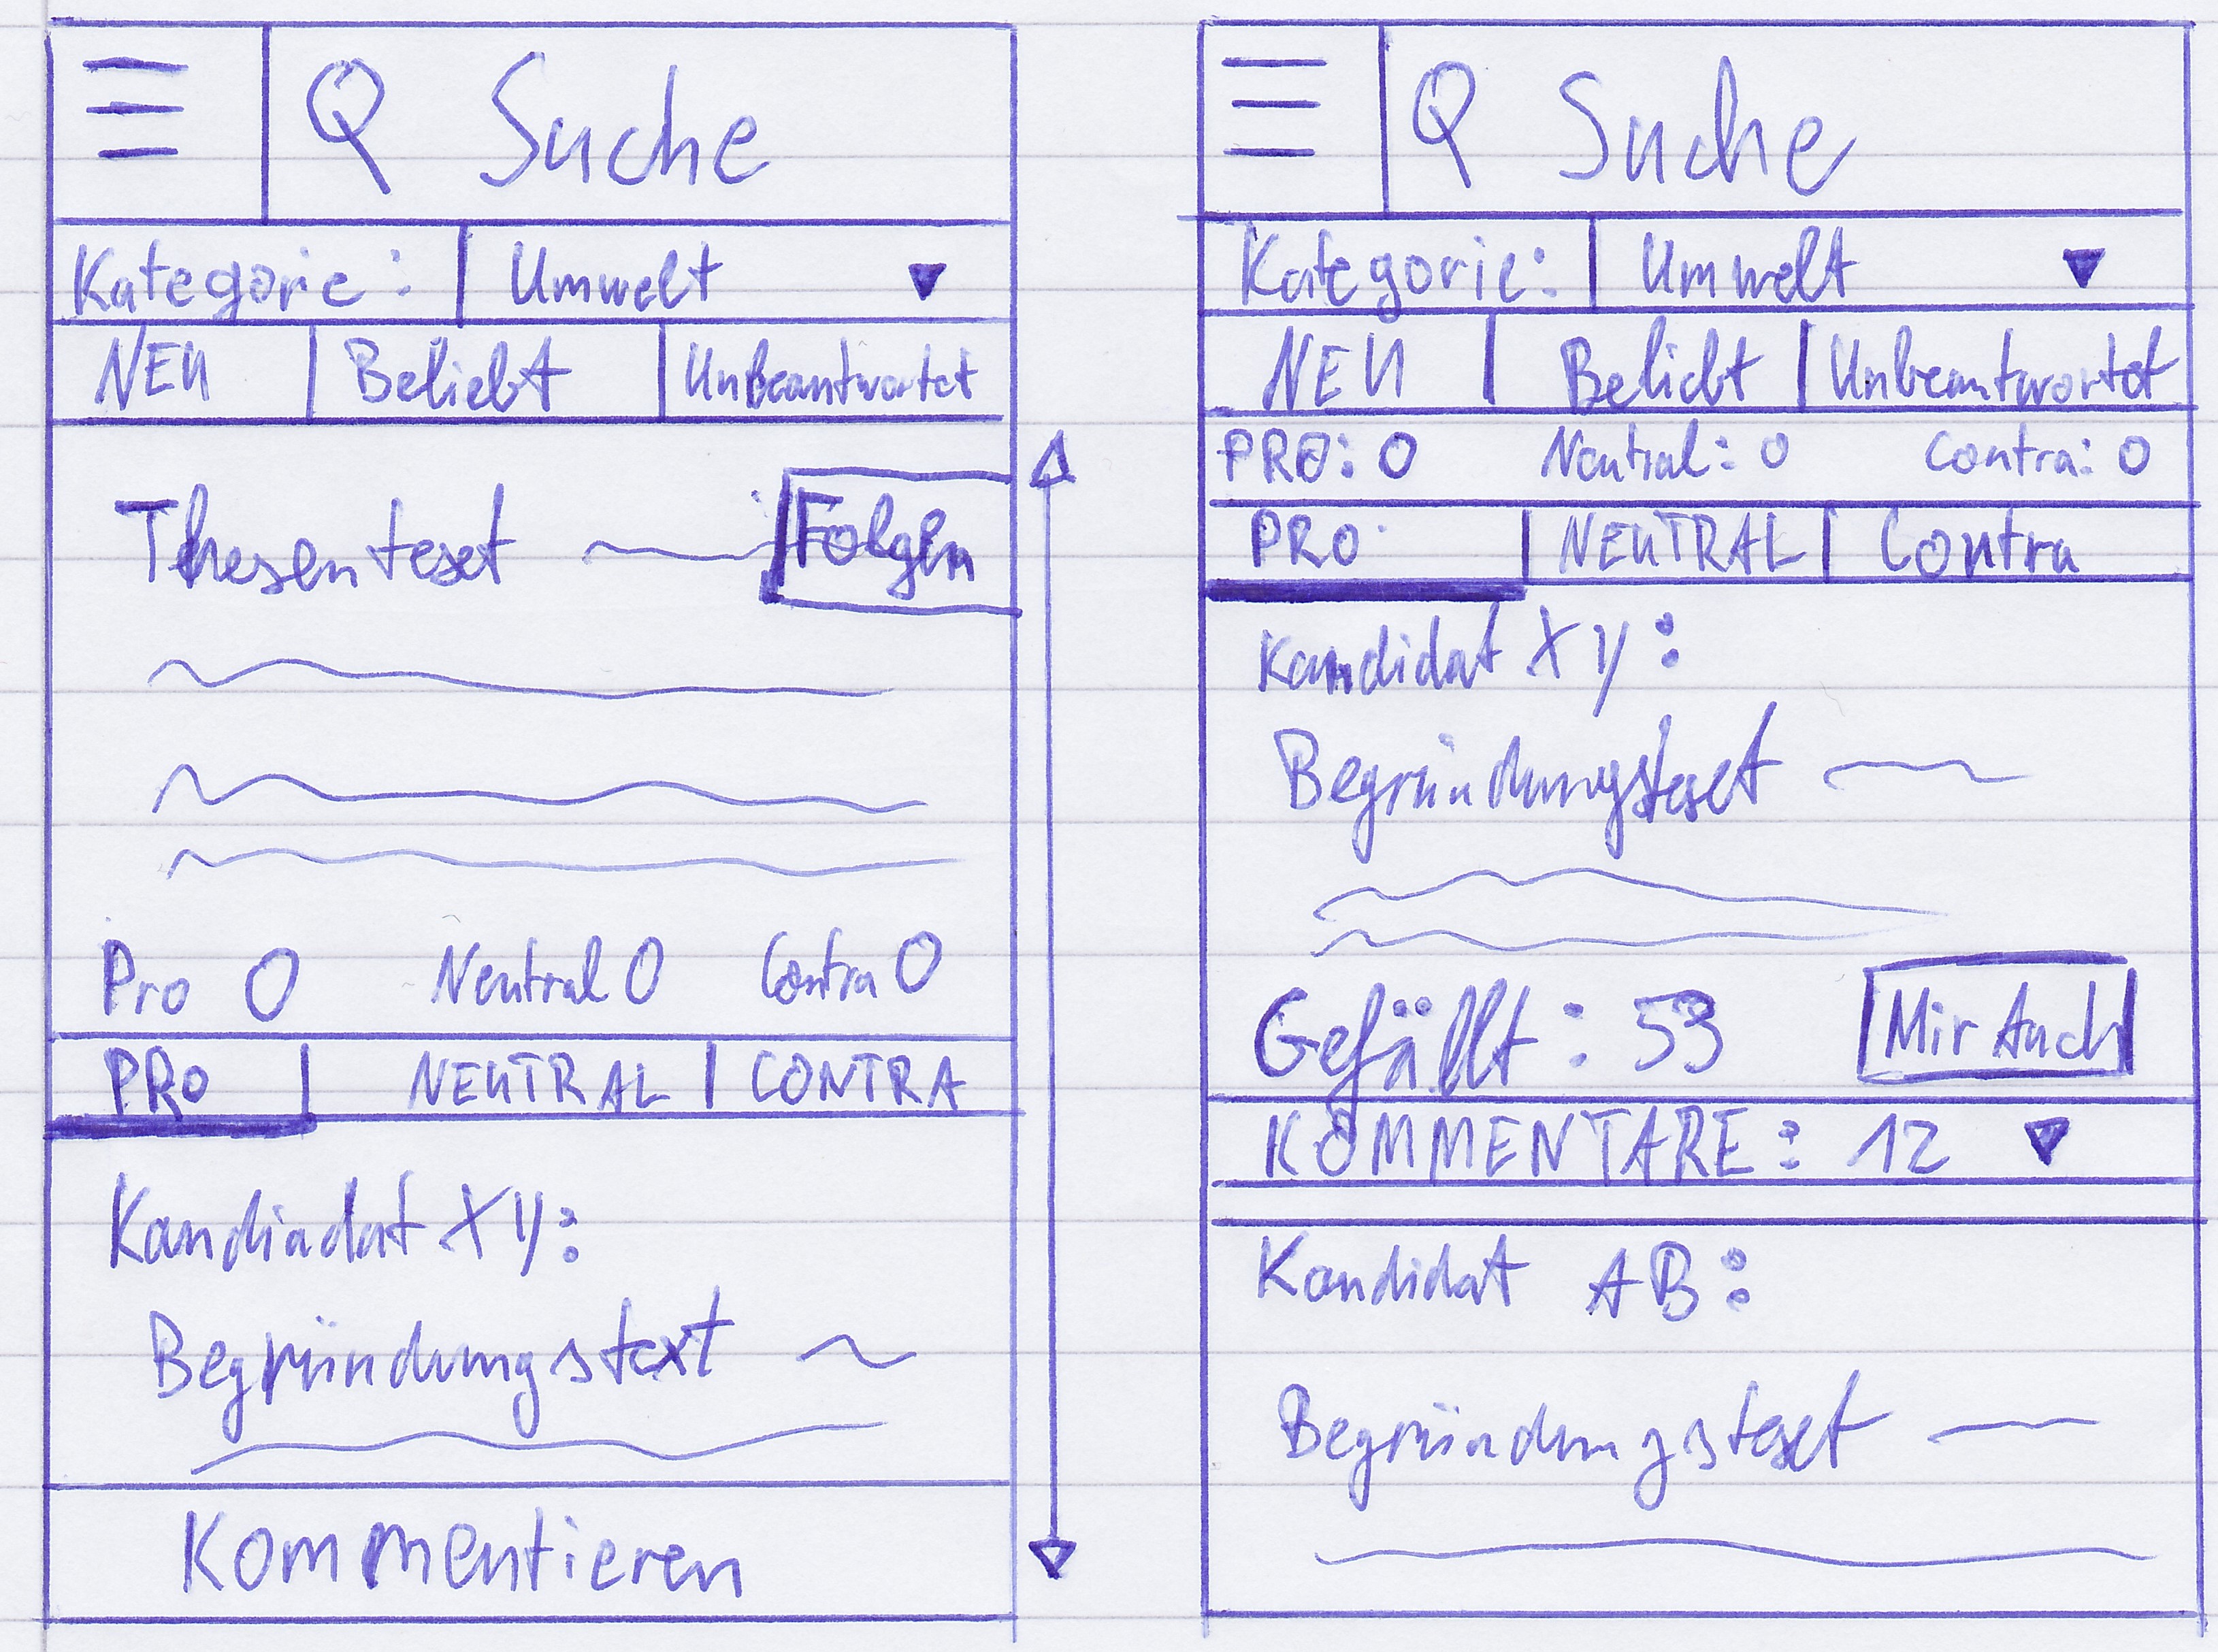 Suche
Kategorie: Umwelt
NEU Beliebt Unbeantwortet
Thesentext Folgen
Pro 0 Neutral 0 Contra 0
PRO NEUTRAL CONTRA
Kandiadat XY:
Begründungstext
Kommentieren
Suche
Kategorie: Umwelt
NEU Beliebt Unbeantwortet
PRO: 0 Neutral: 0 Contra: 0
PRO NEUTRAL Contra
Kandidat XY:
Begründungstext
Gefällt: 53 Mir Auch
KOMMENTARE: 12
Kandidat AB:
Begründungstext